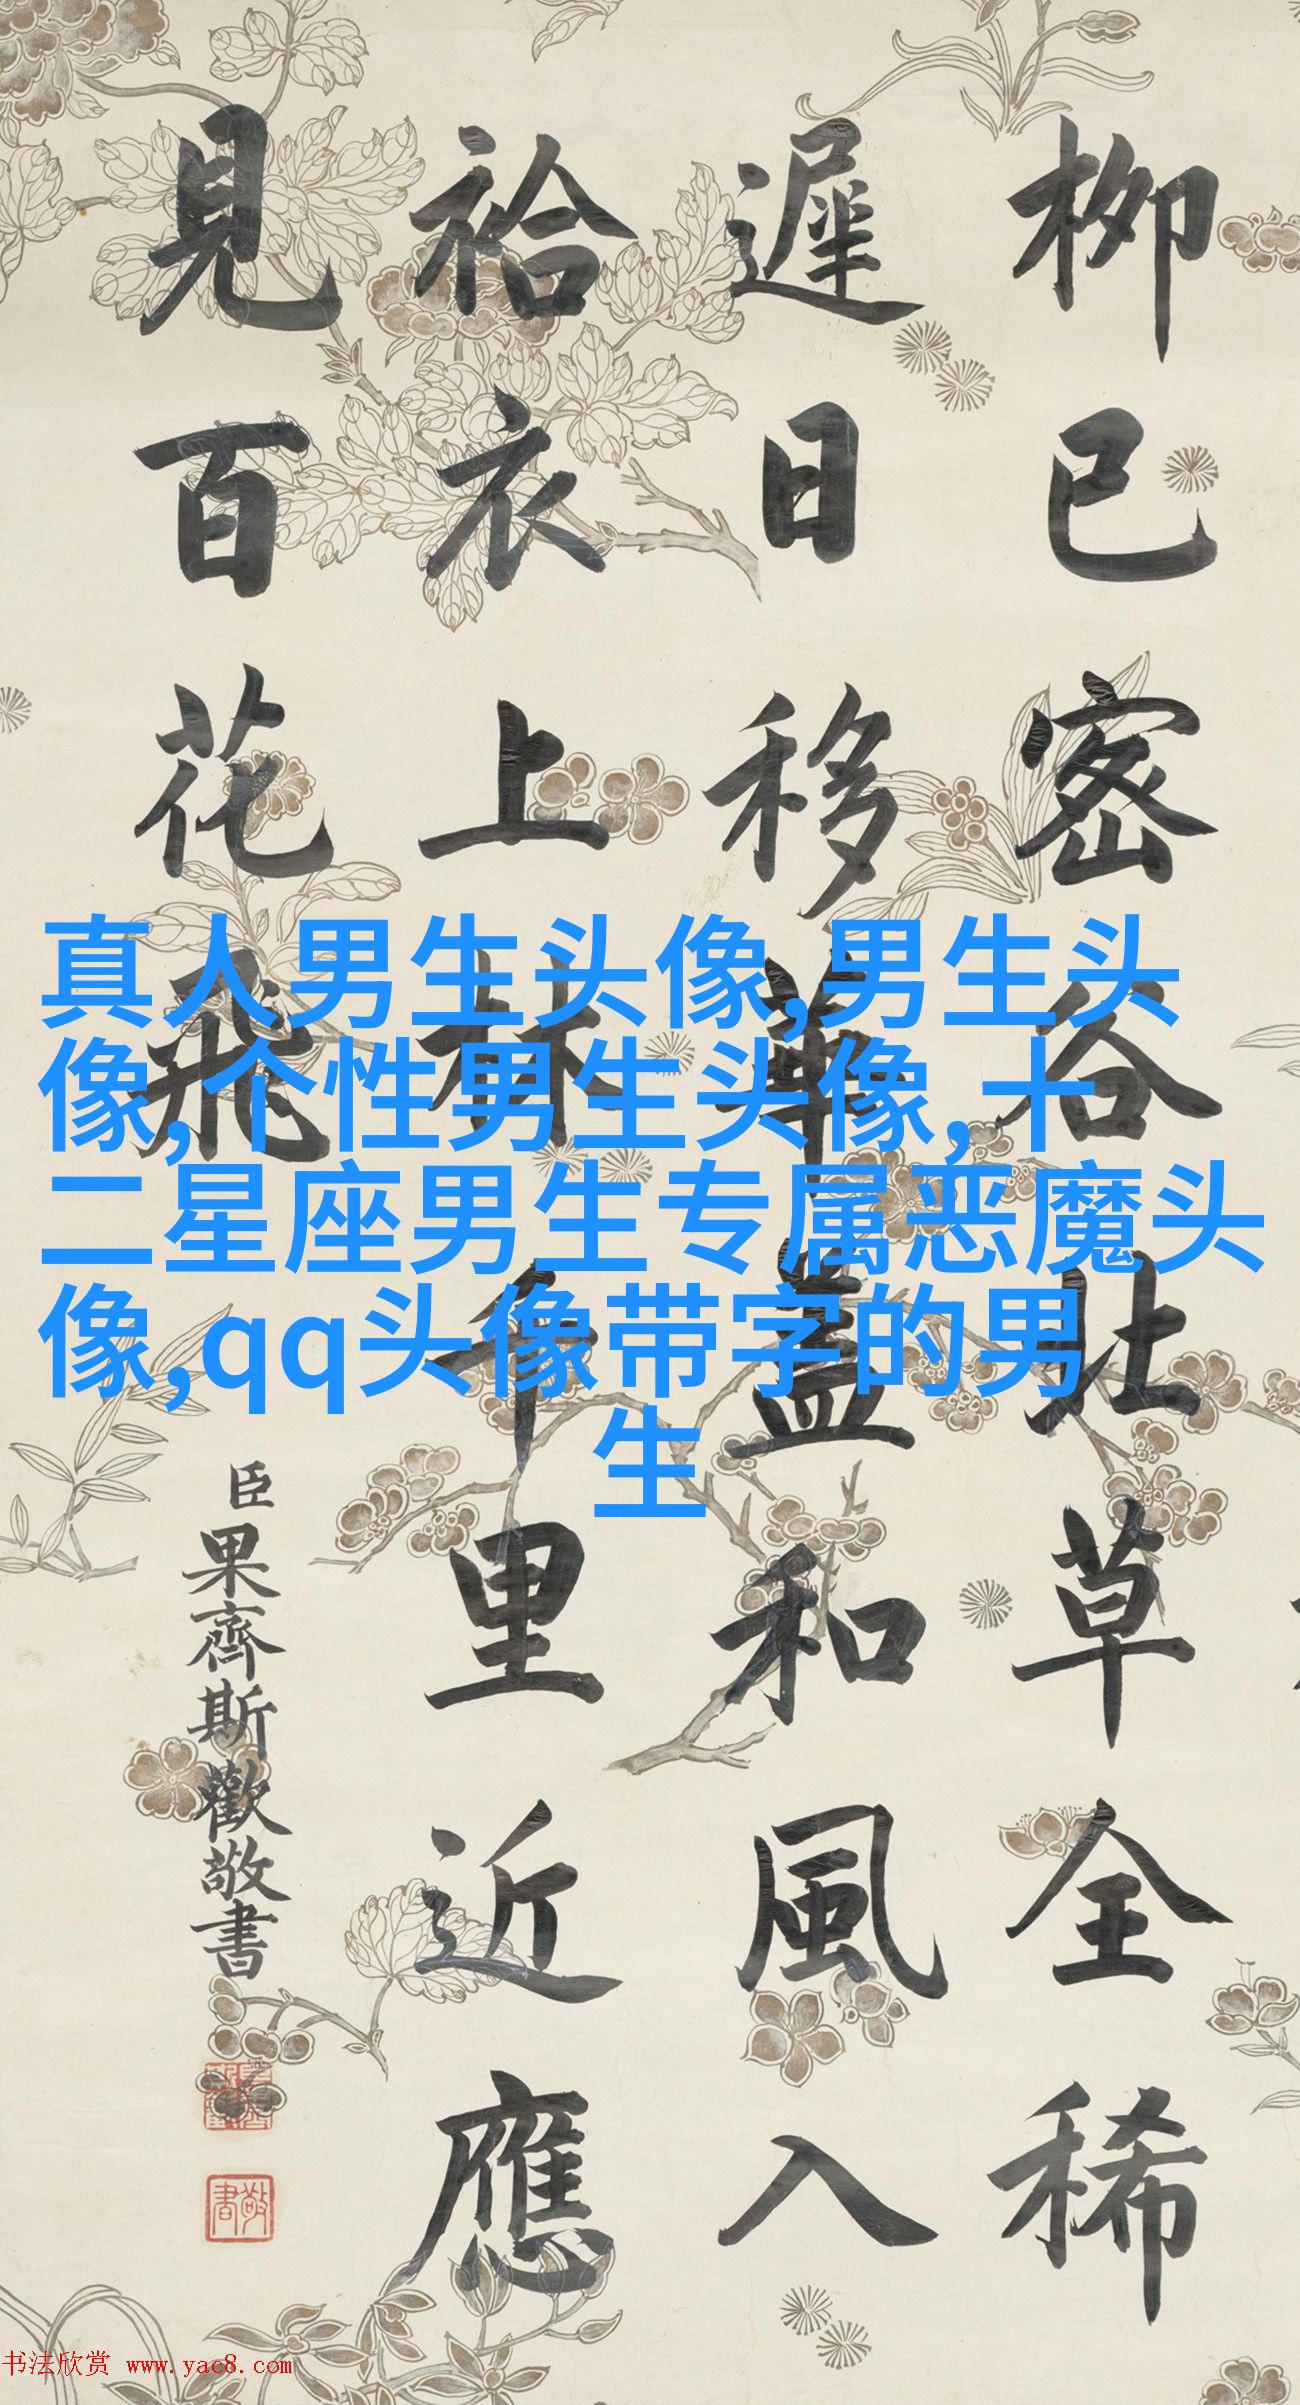 柳已密谷北草全稀
遲日移華蓋和風入
袷衣上林千里近應
見百花飛
臣果齊斯歡敬書
敬書
真人男生头像,男生头
像,个性男生头像,十
二星座男生专属恶魔头
像,qq头像带字的男
生
书法欣赏 www.yac8.com